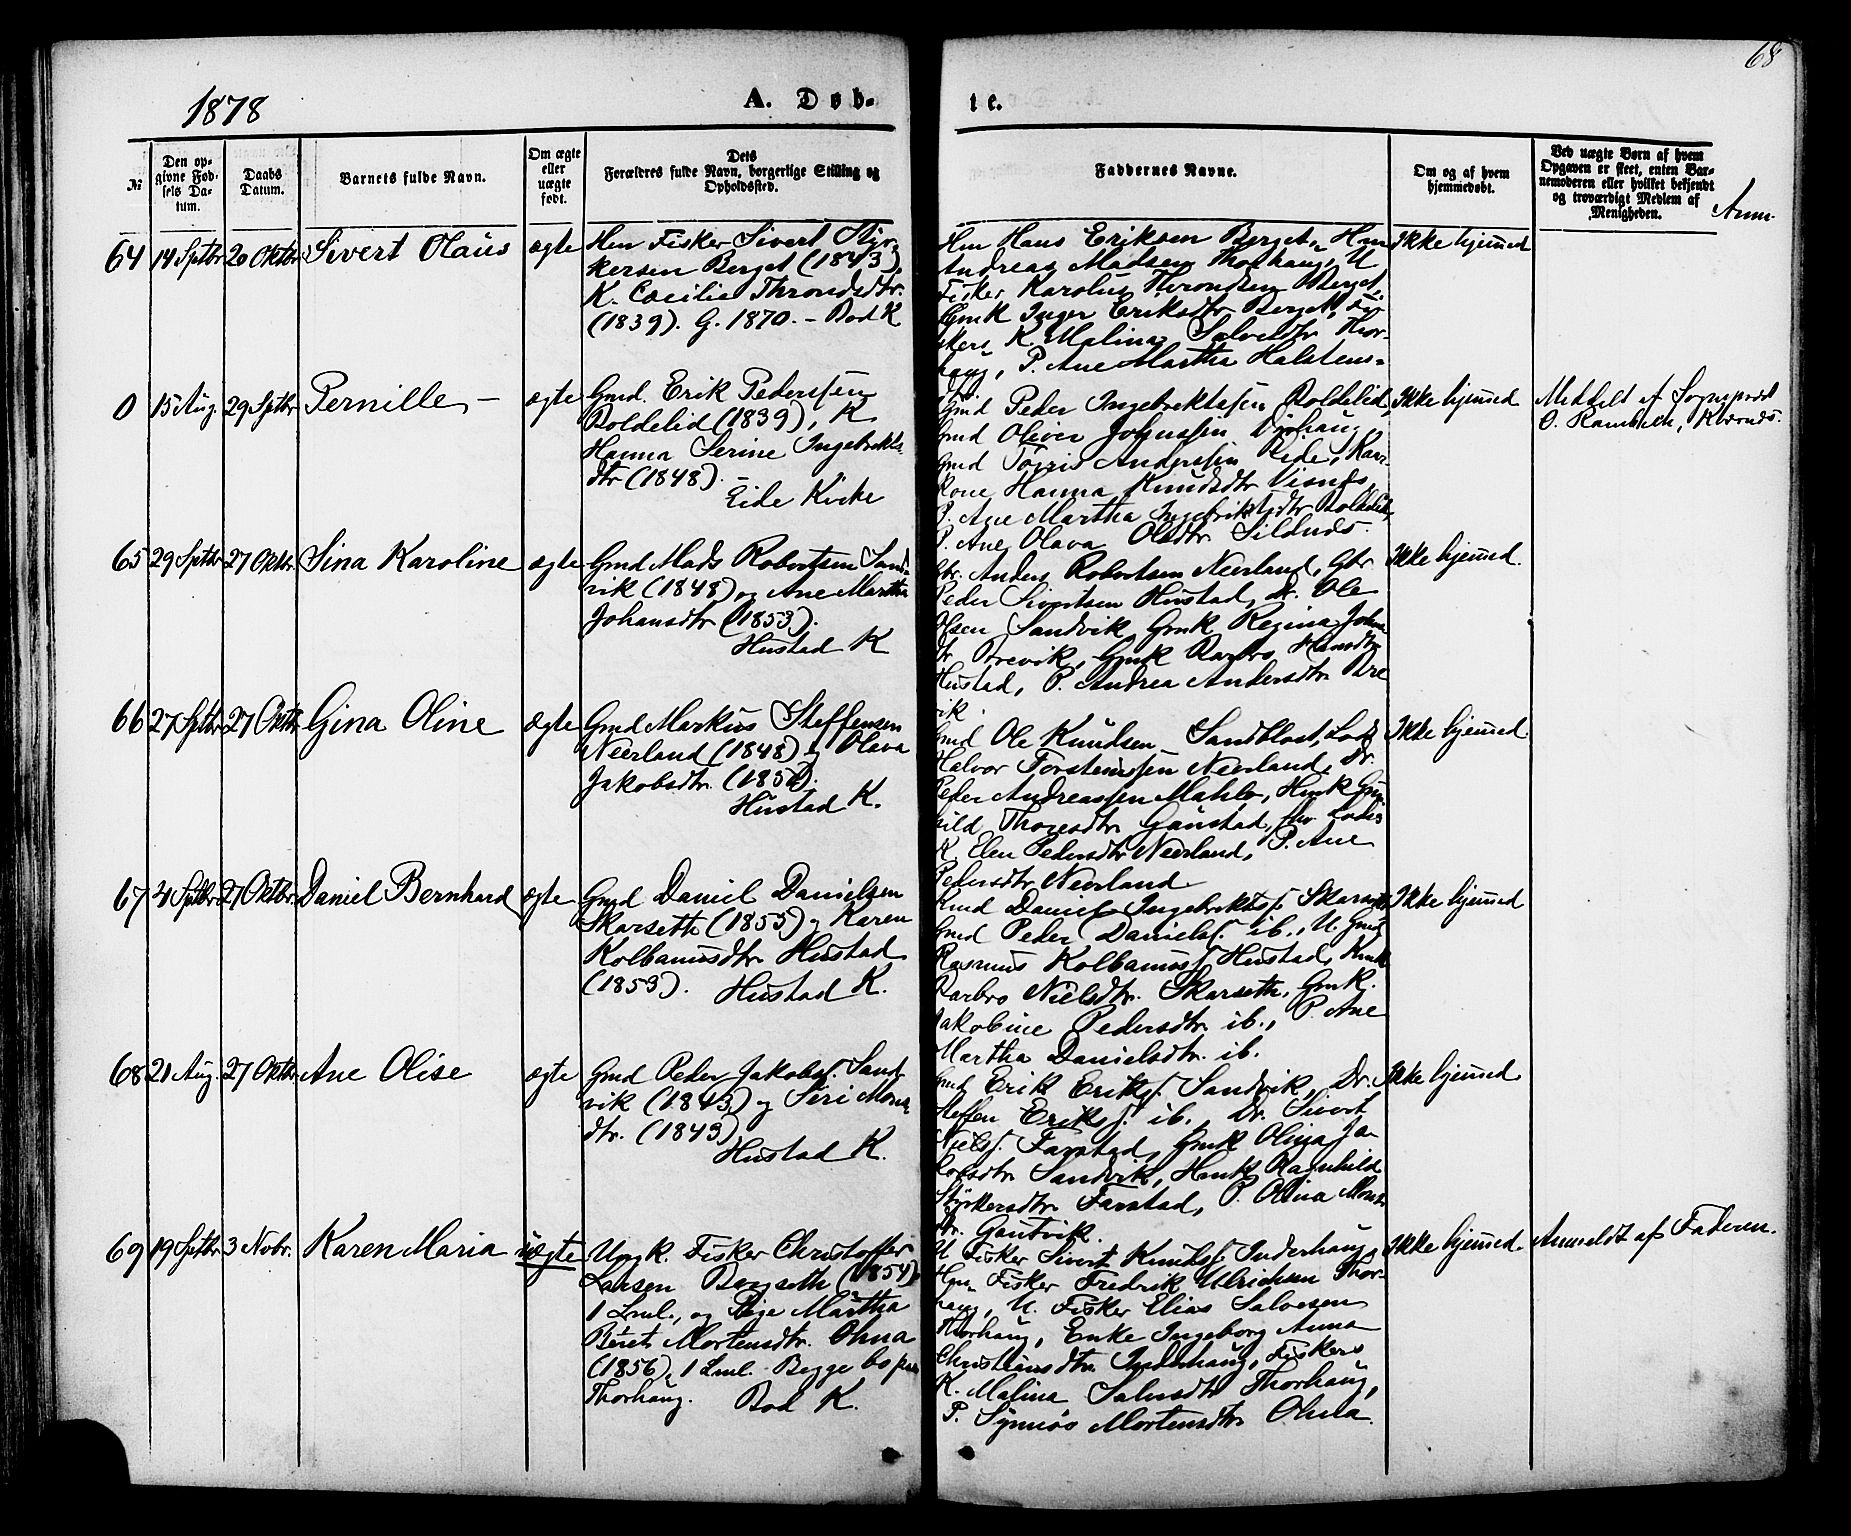 68
1878
A. Døb-
te.
№
Den op-
givne Fød-
sels Da-
tum.
Daabs
Datum.
Barnets fulde Navn.
Om ægte
eller
uægte
født.
Dets
Forældres fulde Navn, borgerlige Stilling og
Opholdssted.
Faddernes Navne.
Om og af hvem
hjemmedøbt.
Ved uægte Børn af hvem
Opgaven er skeet, enten Bar-
nemoderen eller hvilket bekjendt
og troværdigt Medlem af
Menigheden.
Anm.
64 14 Septbr 20 Oktbr Sivert Olaus ægte
Hm Fisker Sivert Styr-
kersen Berget (1843),
K. Cæcilie Throndsdtr.
(1839). G. 1870. - Bod K
Hm Hans Eriksen Berget, Hm
Andreas Madsen Thorhaug, U
Fisker Karolus Throndsen Berget,
Gmk Inger Eriksdtr Berget, Fi-
skers K. Malina Salvesdtr Thor-
haug, P. Ane Martha Halstens-
dtr
Ikke hjemmed
0 15 Aug. 29 Septbr Pernille - ægte
Gmd. Erik Pederssen
Boldelid (1839), K
Hanna Serine Ingebrikts-
dtr (1848). -
Eide Kirke
Gmd Peder Ingebriktssen Boldelid,
Gmd Oliver Johnssen
Gmd Anderssen Eide,
kone Hanna Knudsdtr Visnes,
P. Ane Martha Ingebriktsdtr Boldelid,
P. Ane Olava Olsdtr Sildnes.
Ikke hjemmed
Meddelt af Sognepræst
O. Rambech, Kværnæs.
65 29 Septbr 27 Oktbr. Sina Karoline ægte
Gmd Mads Robertsen Sand-
vik (1848) og Ane Martha
Johansdtr (1853).
Hustad K
Gbr. Anders Robertsen Neerland, Gbr
Peder Sivertsen Hustad, Dr. Ole
Olsen Sandvik, Gmk Regina Johns-
dtr Brevik, Gmk Barbro Hansdtr
Hustad, P. Andrea Andersdtr Bre
vik.
Ikke hjemmed.
66 27 Septbr 27 Oktbr. Gina Oline ægte
Gmd Markus Steffensen
Neerland (1848) og Olava
Jakobsdtr. (1851).
Hustad K.
Gmd Ole Knudsen Sandblost, Lods
Halvor Torstenssen Neerland, Dr.
Peder Andreassen Mahle, Hmk Gun
hild Thoresdtr Gaustad, fhv. Lods
K. Elen Pedersdtr Neerland, P. Ane
Pedersdtr Neerland
Ikke hjemmed.
67 4 Septbr. 27 Oktbr. Daniel Bernhard ægte
Gmd Daniel Danielsen
Skarseth (1855) og Karen
Kolbanusdtr Hustad
(1853). Hustad K.
Kmd Daniel Ingebriktss. Skarseth
Gmd Peder Danielss. ib., U. Gmd
Rasmus Kolbanuss. Hustad, Kmk
Barbro Nielsdtr. Skarseth, Gmk.
Jakobine Pedersdtr. ib., P. Ane
Martha Danielsdtr. ib.
Ikke hjemmed
68 21 Aug. 27 Oktbr. Ane Olise ægte
Gmd Peder Jakobss. Sand
vik (1843) og Siri Mons
dtr. (1843)
Hustad K.
Gmd Erik Erikss. Sandvik, Dr.
Steffen Erikss. ib., Dr. Sivert
Nielss. Farstad, Gmk Olina Ja
kobsdtr Sandvik, Hmk Ragnhild
Styrkersdtr. Farstad, P. Olina Mons
dtr. Gautvik.
Ikke hjemmed.
69 19 Septbr 3 Novbr. Karen Maria uægte
Ungk. Fisker Christoffer
Larsen Bergseth (1854)
1 Lml., og Pige Martha
Beret Mortensdtr. Ohna
(1856), 1 Lml. Begge bo paa
Thorhaug. Bod K.
U Fisker Sivert Knudss. Inderhaug,
Hm Fisker Fredrik Ulrichsen Thor-
haug, U. Fisker Elias Salvesen
Thorhaug, Enke Ingeborg Anna
Christiansdtr Inderhaug, Fiskers
K. Malina Salvesdtr Thorhaug,
P. Synnøv Mortensdtr Ohna.
Ikke hjemmed.
Anmeldt af Faderen.